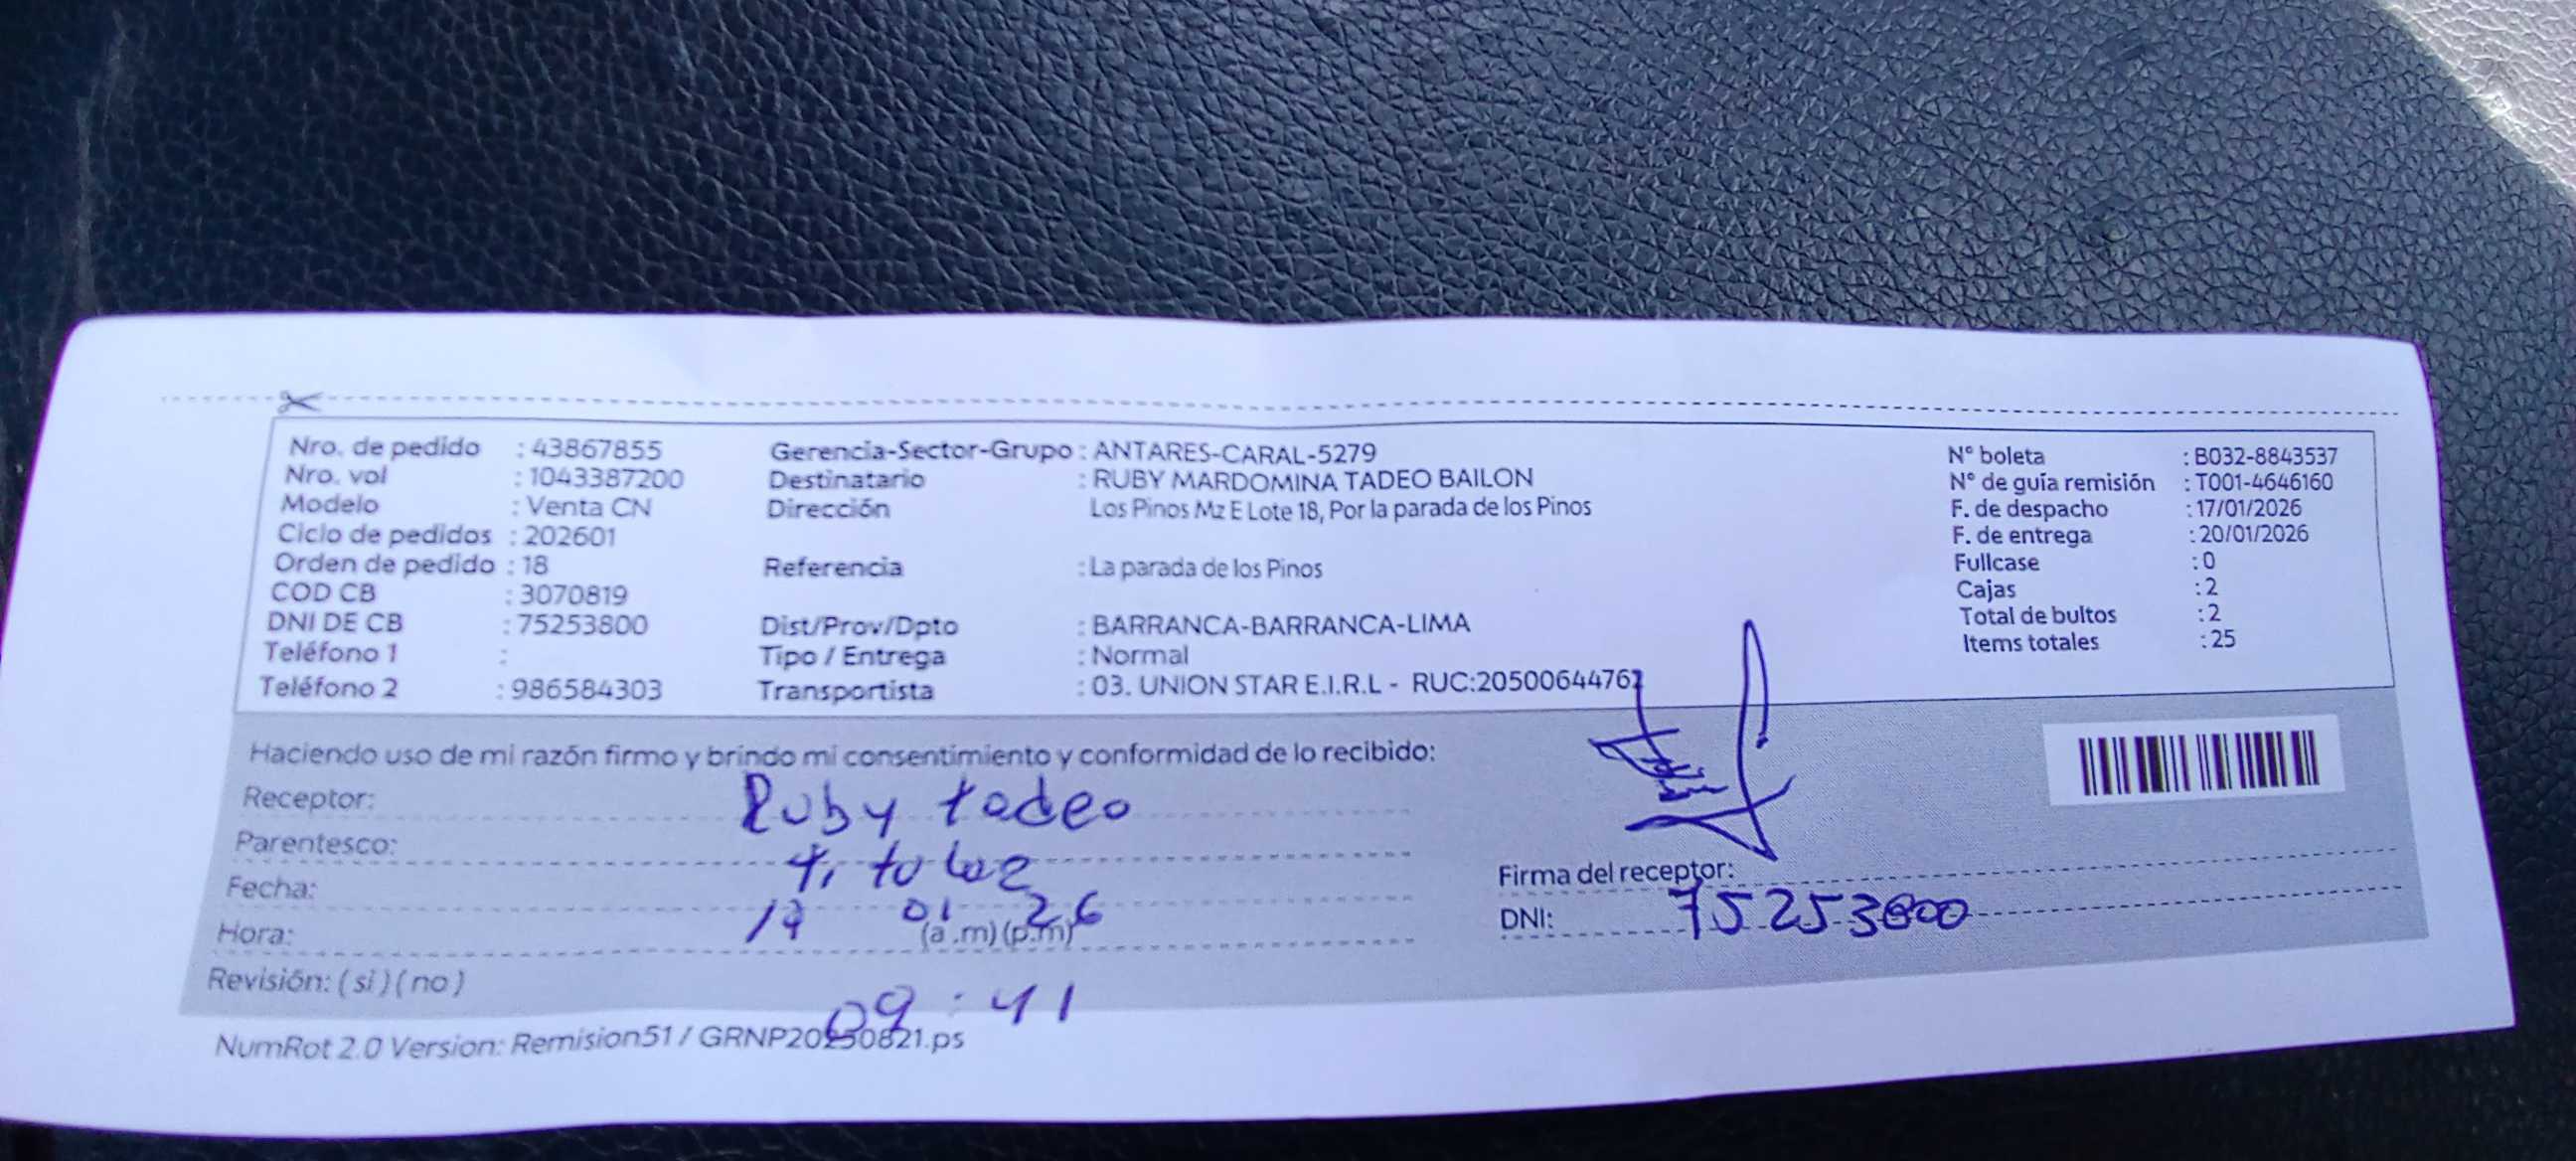 Nro. de pedido : 43867855
Nro. vol : 1043387200
Modelo : Venta CN
Ciclo de pedidos : 202601
Orden de pedido : 18
COD CB : 3070819
DNI DE CB : 75253800
Teléfono 1 :
Teléfono 2 : 986584303
Gerencia-Sector-Grupo : ANTARES-CARAL-5279
Destinatario : RUBY MARDOMINA TADEO BAILON
Dirección Los Pinos Mz E Lote 18, Por la parada de los Pinos
Referencia : La parada de los Pinos
Dist/Prov/Dpto : BARRANCA-BARRANCA-LIMA
Tipo / Entrega : Normal
Transportista : 03. UNION STAR E.I.R.L - RUC:20500644762
N° boleta : B032-8843537
N° de guía remisión : T001-4646160
F. de despacho : 17/01/2026
F. de entrega : 20/01/2026
Fullcase : 0
Cajas : 2
Total de bultos : 2
Items totales : 25
Haciendo uso de mi razón firmo y brindo mi consentimiento y conformidad de lo recibido:
Receptor: Ruby tadeo
Parentesco: titular
Fecha: 01 26
Hora: (a .m) (p.m) 09 : 41
Revisión: ( si ) ( no )
Firma del receptor:
DNI: 75253800
NumRot 2.0 Version: Remision51 / GRNP20250821.ps